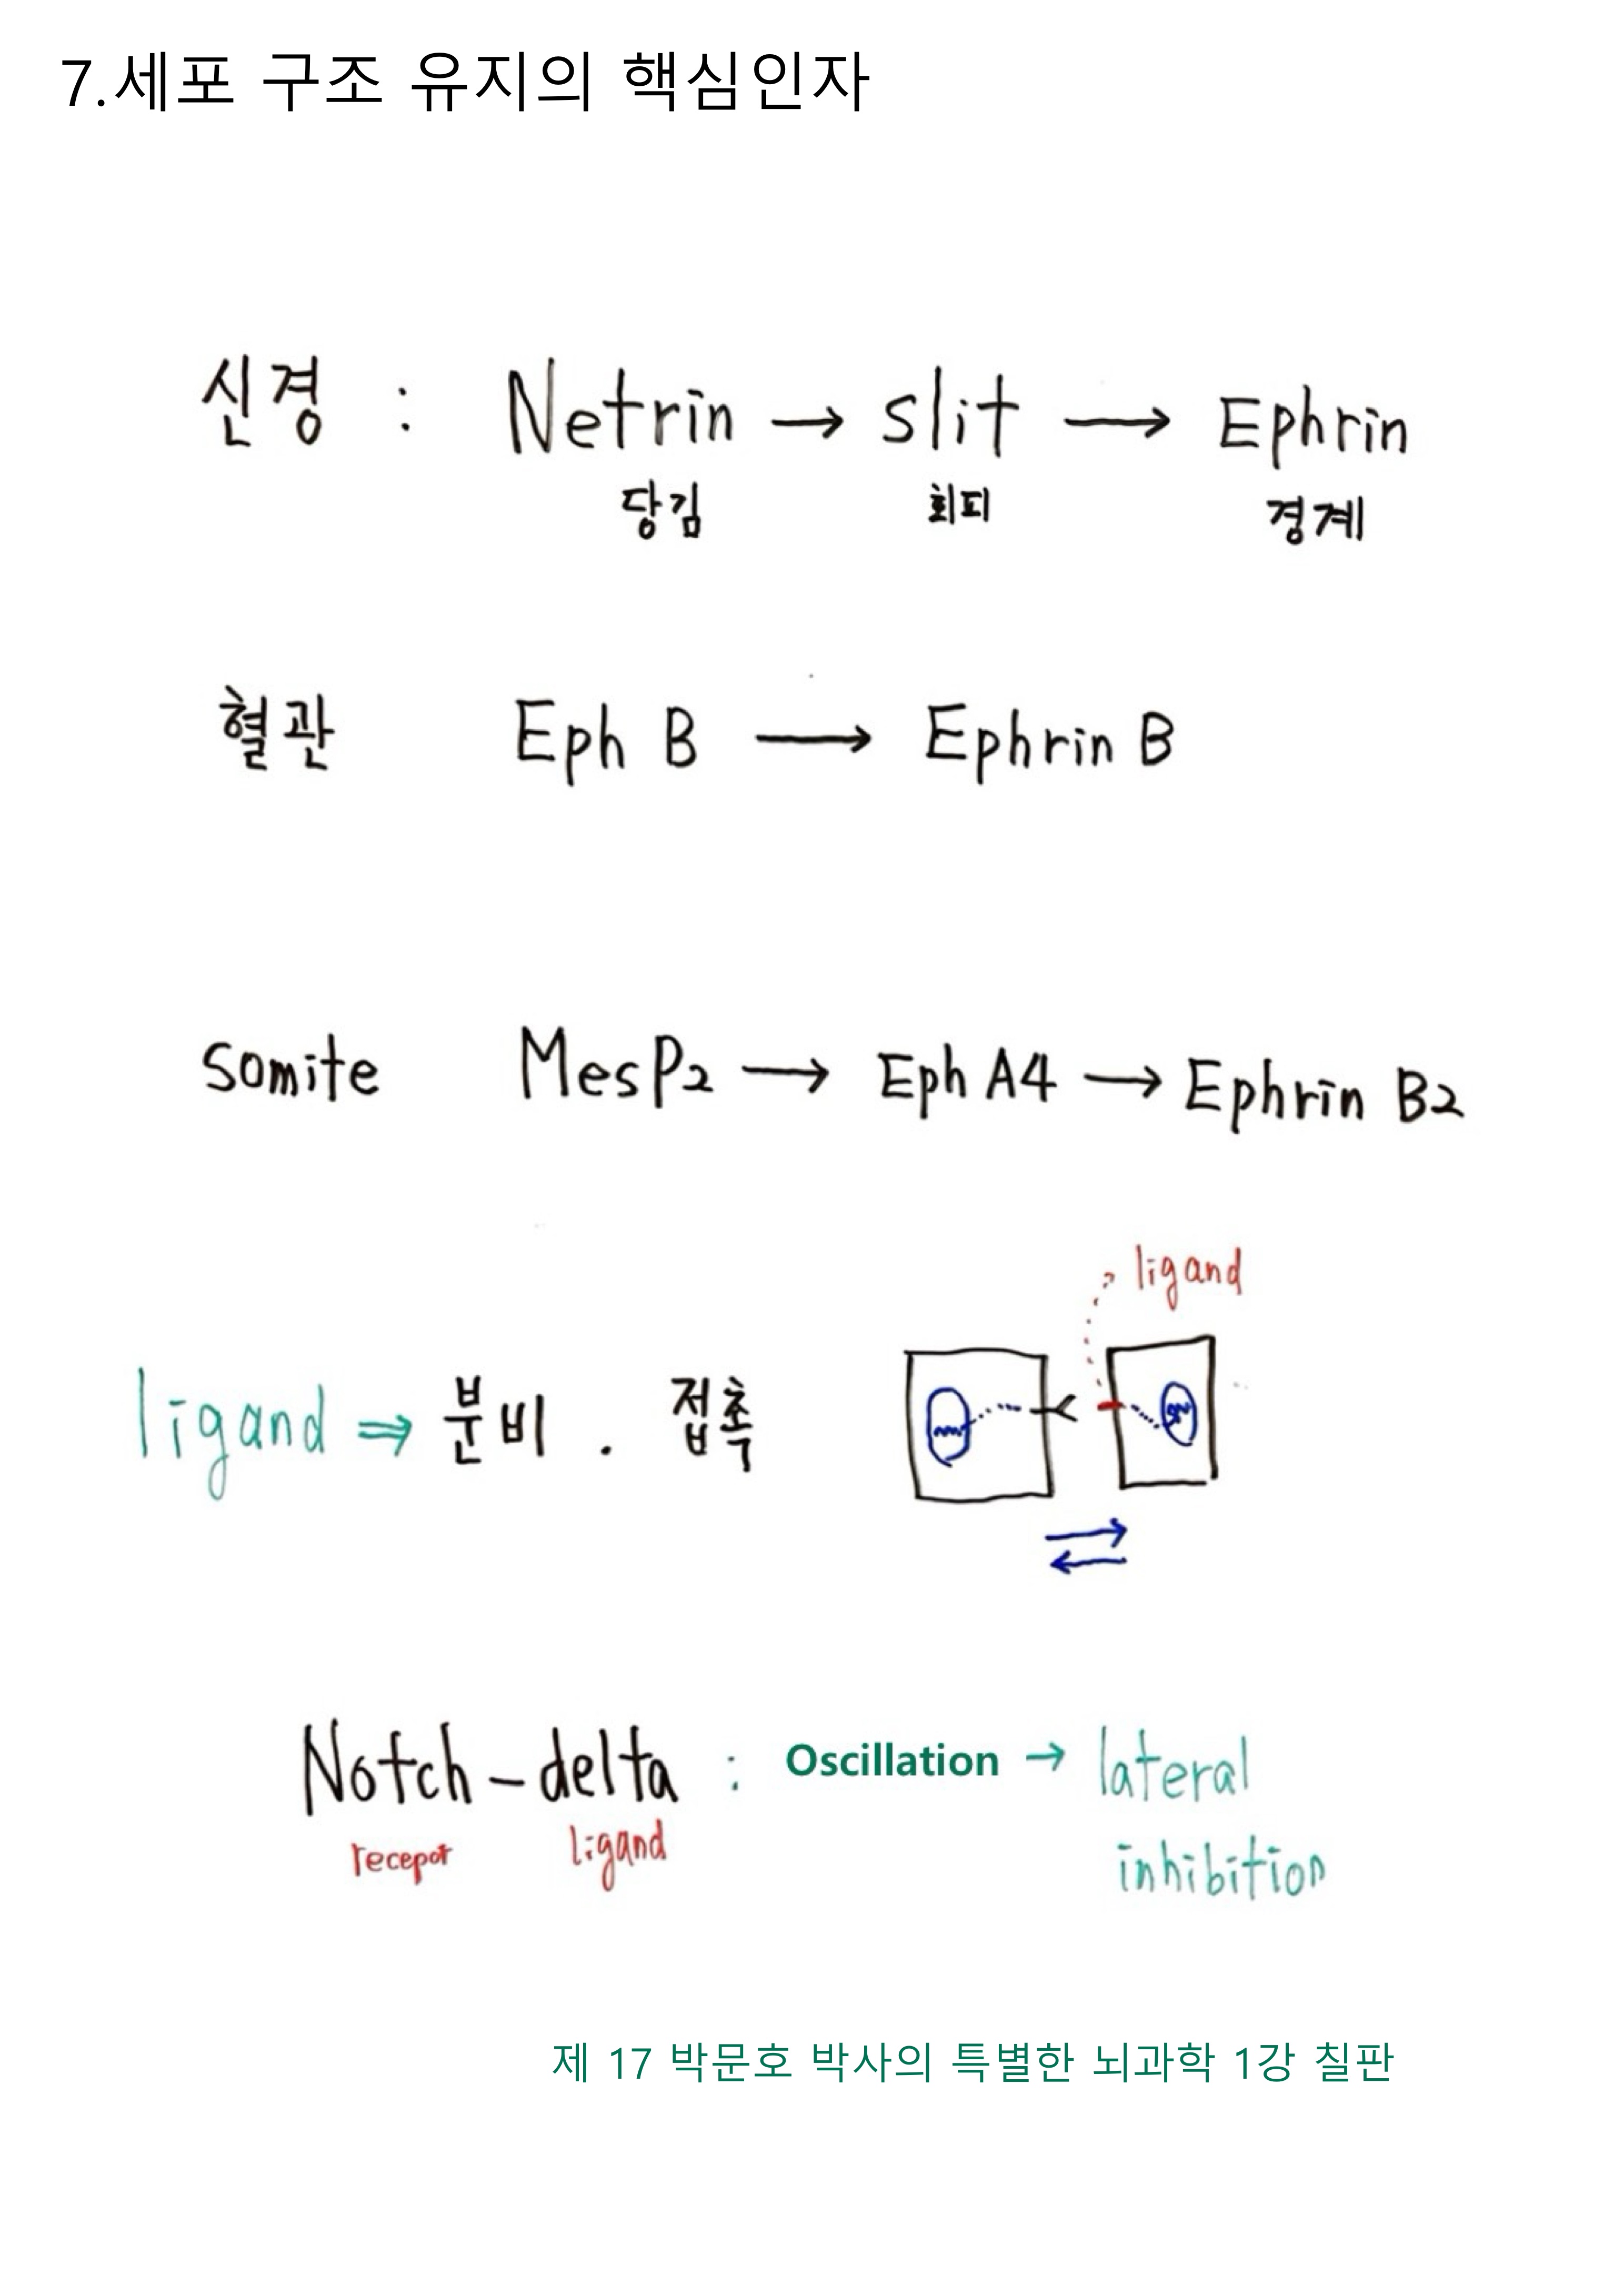 7.세포 구조 유지의 핵심인자
신경 : Netrin → slit → Ephrin
당김 회피 경계
혈관 Eph B → Ephrin B
Somite MesP2 → Eph A4 → Ephrin B2
ligand
ligand ⇒ 분비 . 접촉
Notch - delta : Oscillation → lateral
recepor ligand inhibition
제 17 박문호 박사의 특별한 뇌과학 1강 칠판